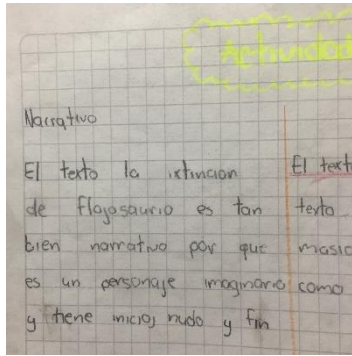 Actividad
Narrativo
El texto la extincion
de flojosaurio es tan
bien narrativo por que
es un personaje imaginario
y tiene inicio, nudo y fin
El text
texto
masic
como